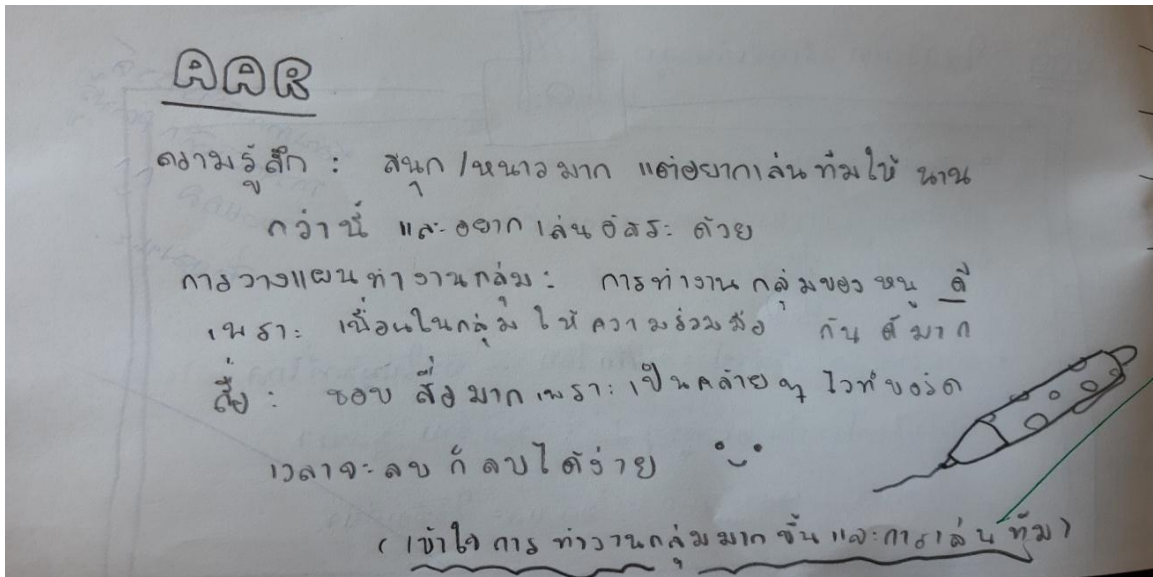 AAR
ความรู้สึก : สนุก /หนาวมาก แต่อยากเล่นทีมให้ นาน
กว่านี้ และอยากเล่นอิสระ ด้วย
การวางแผนทำงานกลุ่ม : การทำงานกลุ่มของหนู ดี
เพราะ เพื่อนในกลุ่ม ให้ความร่วมมือ กันดีมาก
สื่อ : ชอบ สื่อมากเพราะเป็นคล้าย ๆ ไวท์บอร์ด
เวลาจะลบ ก็ลบได้ง่าย
(เข้าใจ การ ทำงานกลุ่มมากขึ้นและการเล่นทีม)